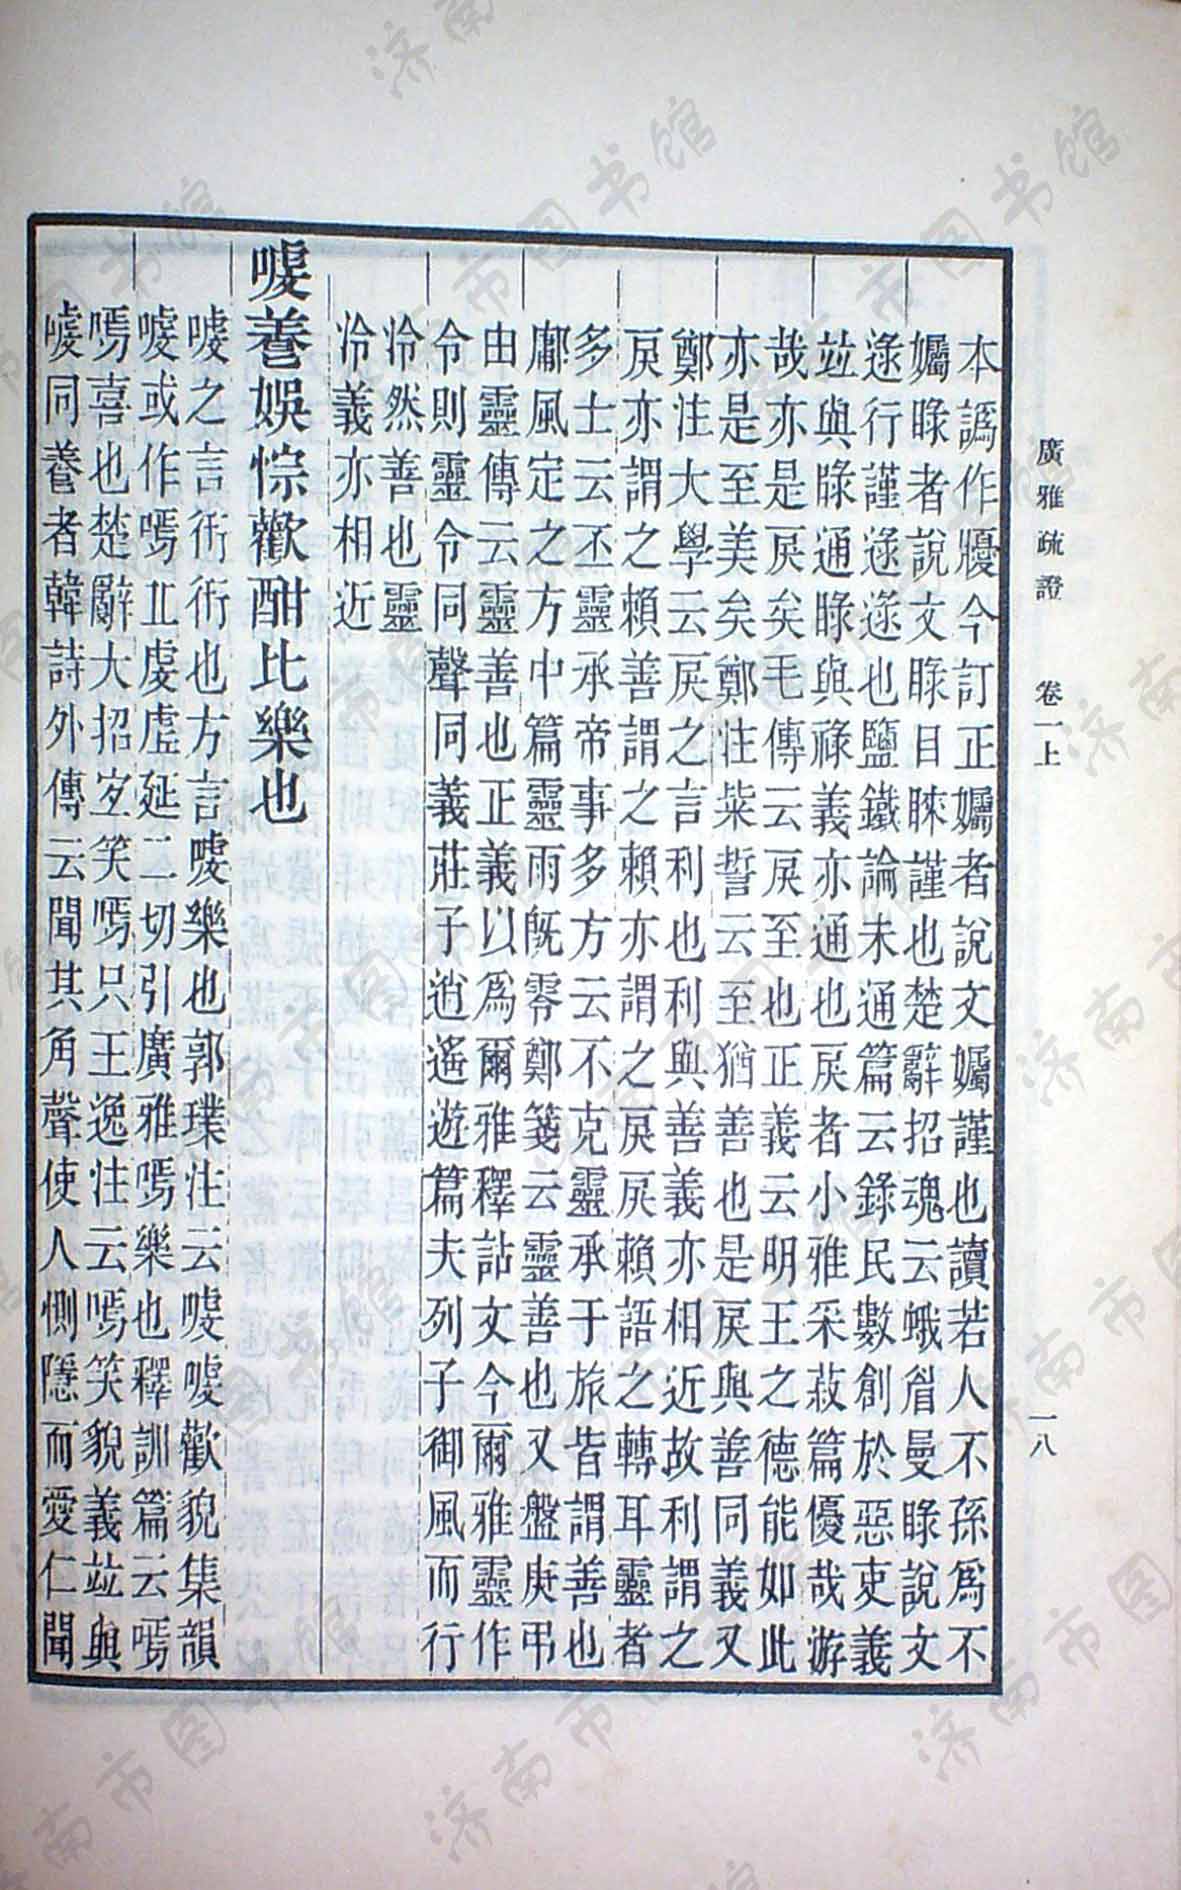 廣雅疏證　卷一上　一八
本譌作懮今訂正孎者說文孎謹也讀若人不孫爲不
孎睩者說文睩目睞謹也楚辭招魂云蛾眉曼睩說文
逯行謹逯逯也鹽鐵論未通篇云錄民數創於惡吏義
竝與睩通睩與祿義亦通也戾者小雅采菽篇優哉游
哉亦是戾矣毛傳云戾至也正義云明王之德能如此
亦是至美矣鄭注粊誓云至猶善也是戾與善同義又
鄭注大學云戾之言利也利與善義亦相近故利謂之
戾亦謂之賴善謂之賴亦謂之戾戾賴語之轉耳靈者
多士云丕靈承帝事多方云不克靈承于旅皆謂善也
鄘風定之方中篇靈雨旣零鄭箋云靈善也又盤庚弔
由靈傳云靈善也正義以爲爾雅釋詁文今爾雅靈作
令則靈令同聲同義莊子逍遙遊篇夫列子御風而行
泠然善也靈
泠義亦相近
㗲㤅娛悰歡酣比樂也
㗲之言衎衎也方言㗲樂也郭璞注云㗲㗲歡貌集韻
㗲或作嘕丘虔虛延二切引廣雅嘕樂也釋訓篇云嘕
嘕喜也楚辭大招宜笑嘕只王逸注云嘕笑貌義竝與
㗲同養者韓詩外傳云聞其角聲使人惻隱而愛仁聞